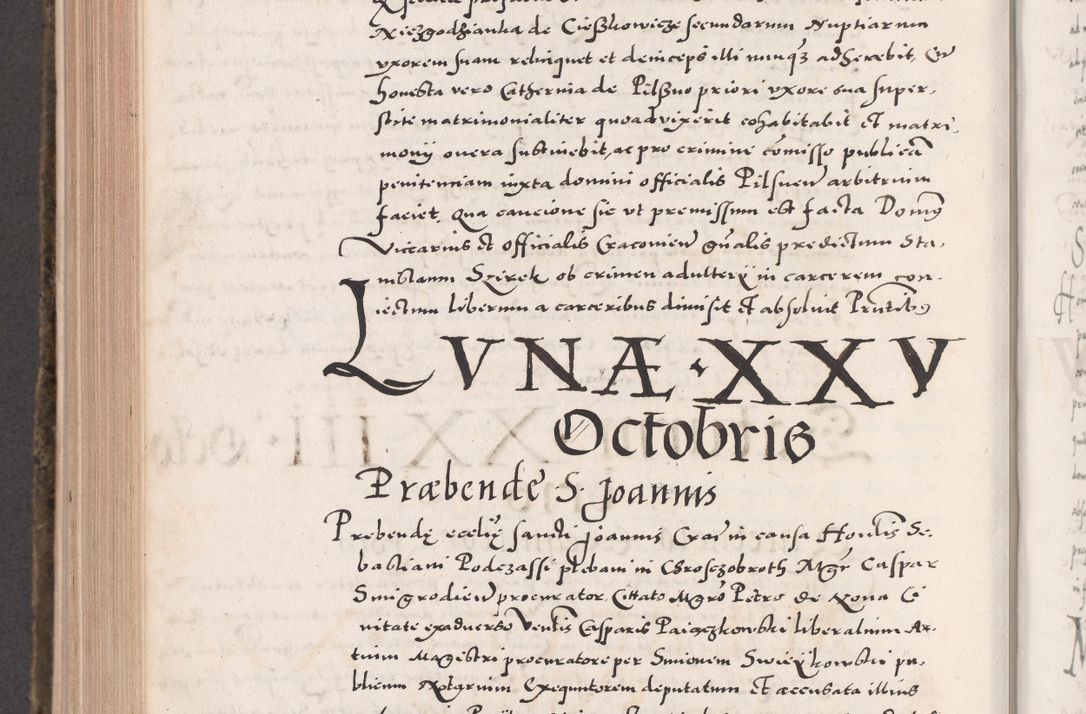 Niezgodzianka de Cieszkowicze secundarum Nuptiarum
vxorem suam relinquet et deinceps illi nunqз adherebit, Et
honesta vero Catherina de Pilszno priori vxore sua super-
stite matrimonialiter quoadvixerit cohabitabit et matri
monij onera sustinebit, ac pro crimine comisso publicā
penitenciam iuxta domini officialis Pilsnen arbitrium
faciet. Qua caucione sic vt premissum est facta Domīs
Vicarius et Officialis Cracovien gn̄alis predictum Sta-
nislaum Szirek ob crimen adulterij in carcerem con-
iectum liberum a carceribus dimisit et absoluit Pn̄tibs
LVNÆ · XXV
Octobris
Præbende S. Joannis
Prebendę ecclię sancti Joannis Crac̄ in causa Hon̄lis Se-
bastiani Podczassi plebani in Chrosczobroth Mgr̄ Caspar
Smigrodien procurator. Cittato Mgr̄o Petro de Nona Ci
uitate ex aduerso Ven̄lis Casparis Paiączkowski liberalium Ar-
tium Magistri procuratore per Simonem Swieykowski pu-
blicum Notarium Exequutorem deputatum Et accusata illius